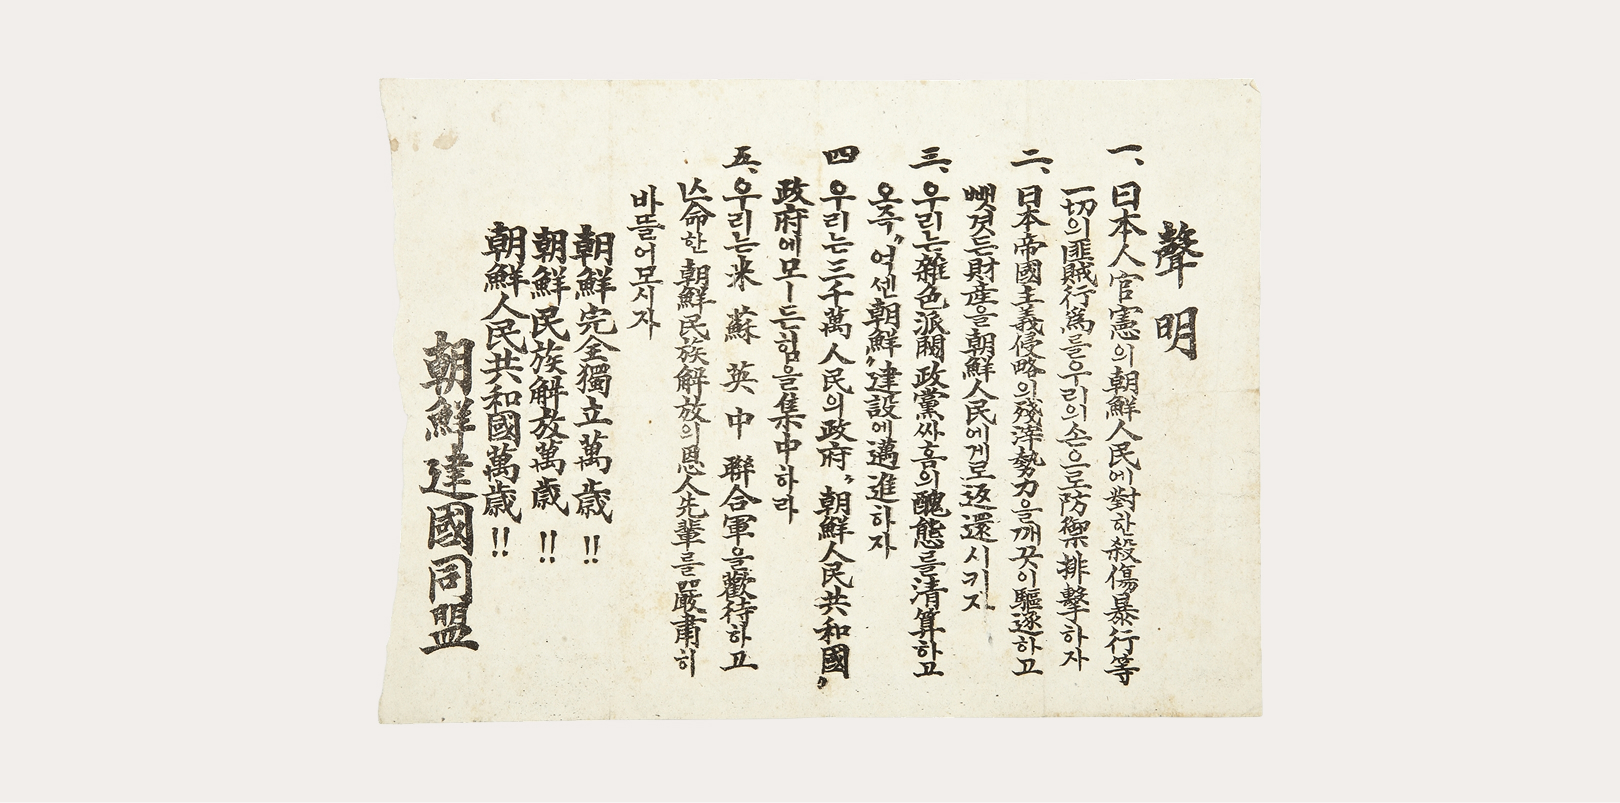 聲明
一、日本人官憲의朝鮮人民에對한殺傷暴行等
一切의匪賊行爲를우리의손으로防禦排擊하자
二、日本帝國主義侵略의殘滓勢力을깨끗이驅逐하고
뺏겻든財産을朝鮮人民에게로返還시키자
三、우리는雜色派閥政黨싸홈의醜態를淸算하고
오즉〃억센朝鮮〃建設에邁進하자
四 우리는三千萬人民의政府〃朝鮮人民共和國〃
政府에모ㅡ든힘을集中하라
五、우리는米蘇英中聯合軍을歡待하고
亡命한朝鮮民族解放의恩人先輩를嚴肅히
바뜰어모시자
朝鮮完全獨立萬歲!!
朝鮮民族解放萬歲!!
朝鮮人民共和國萬歲!!
朝鮮建國同盟